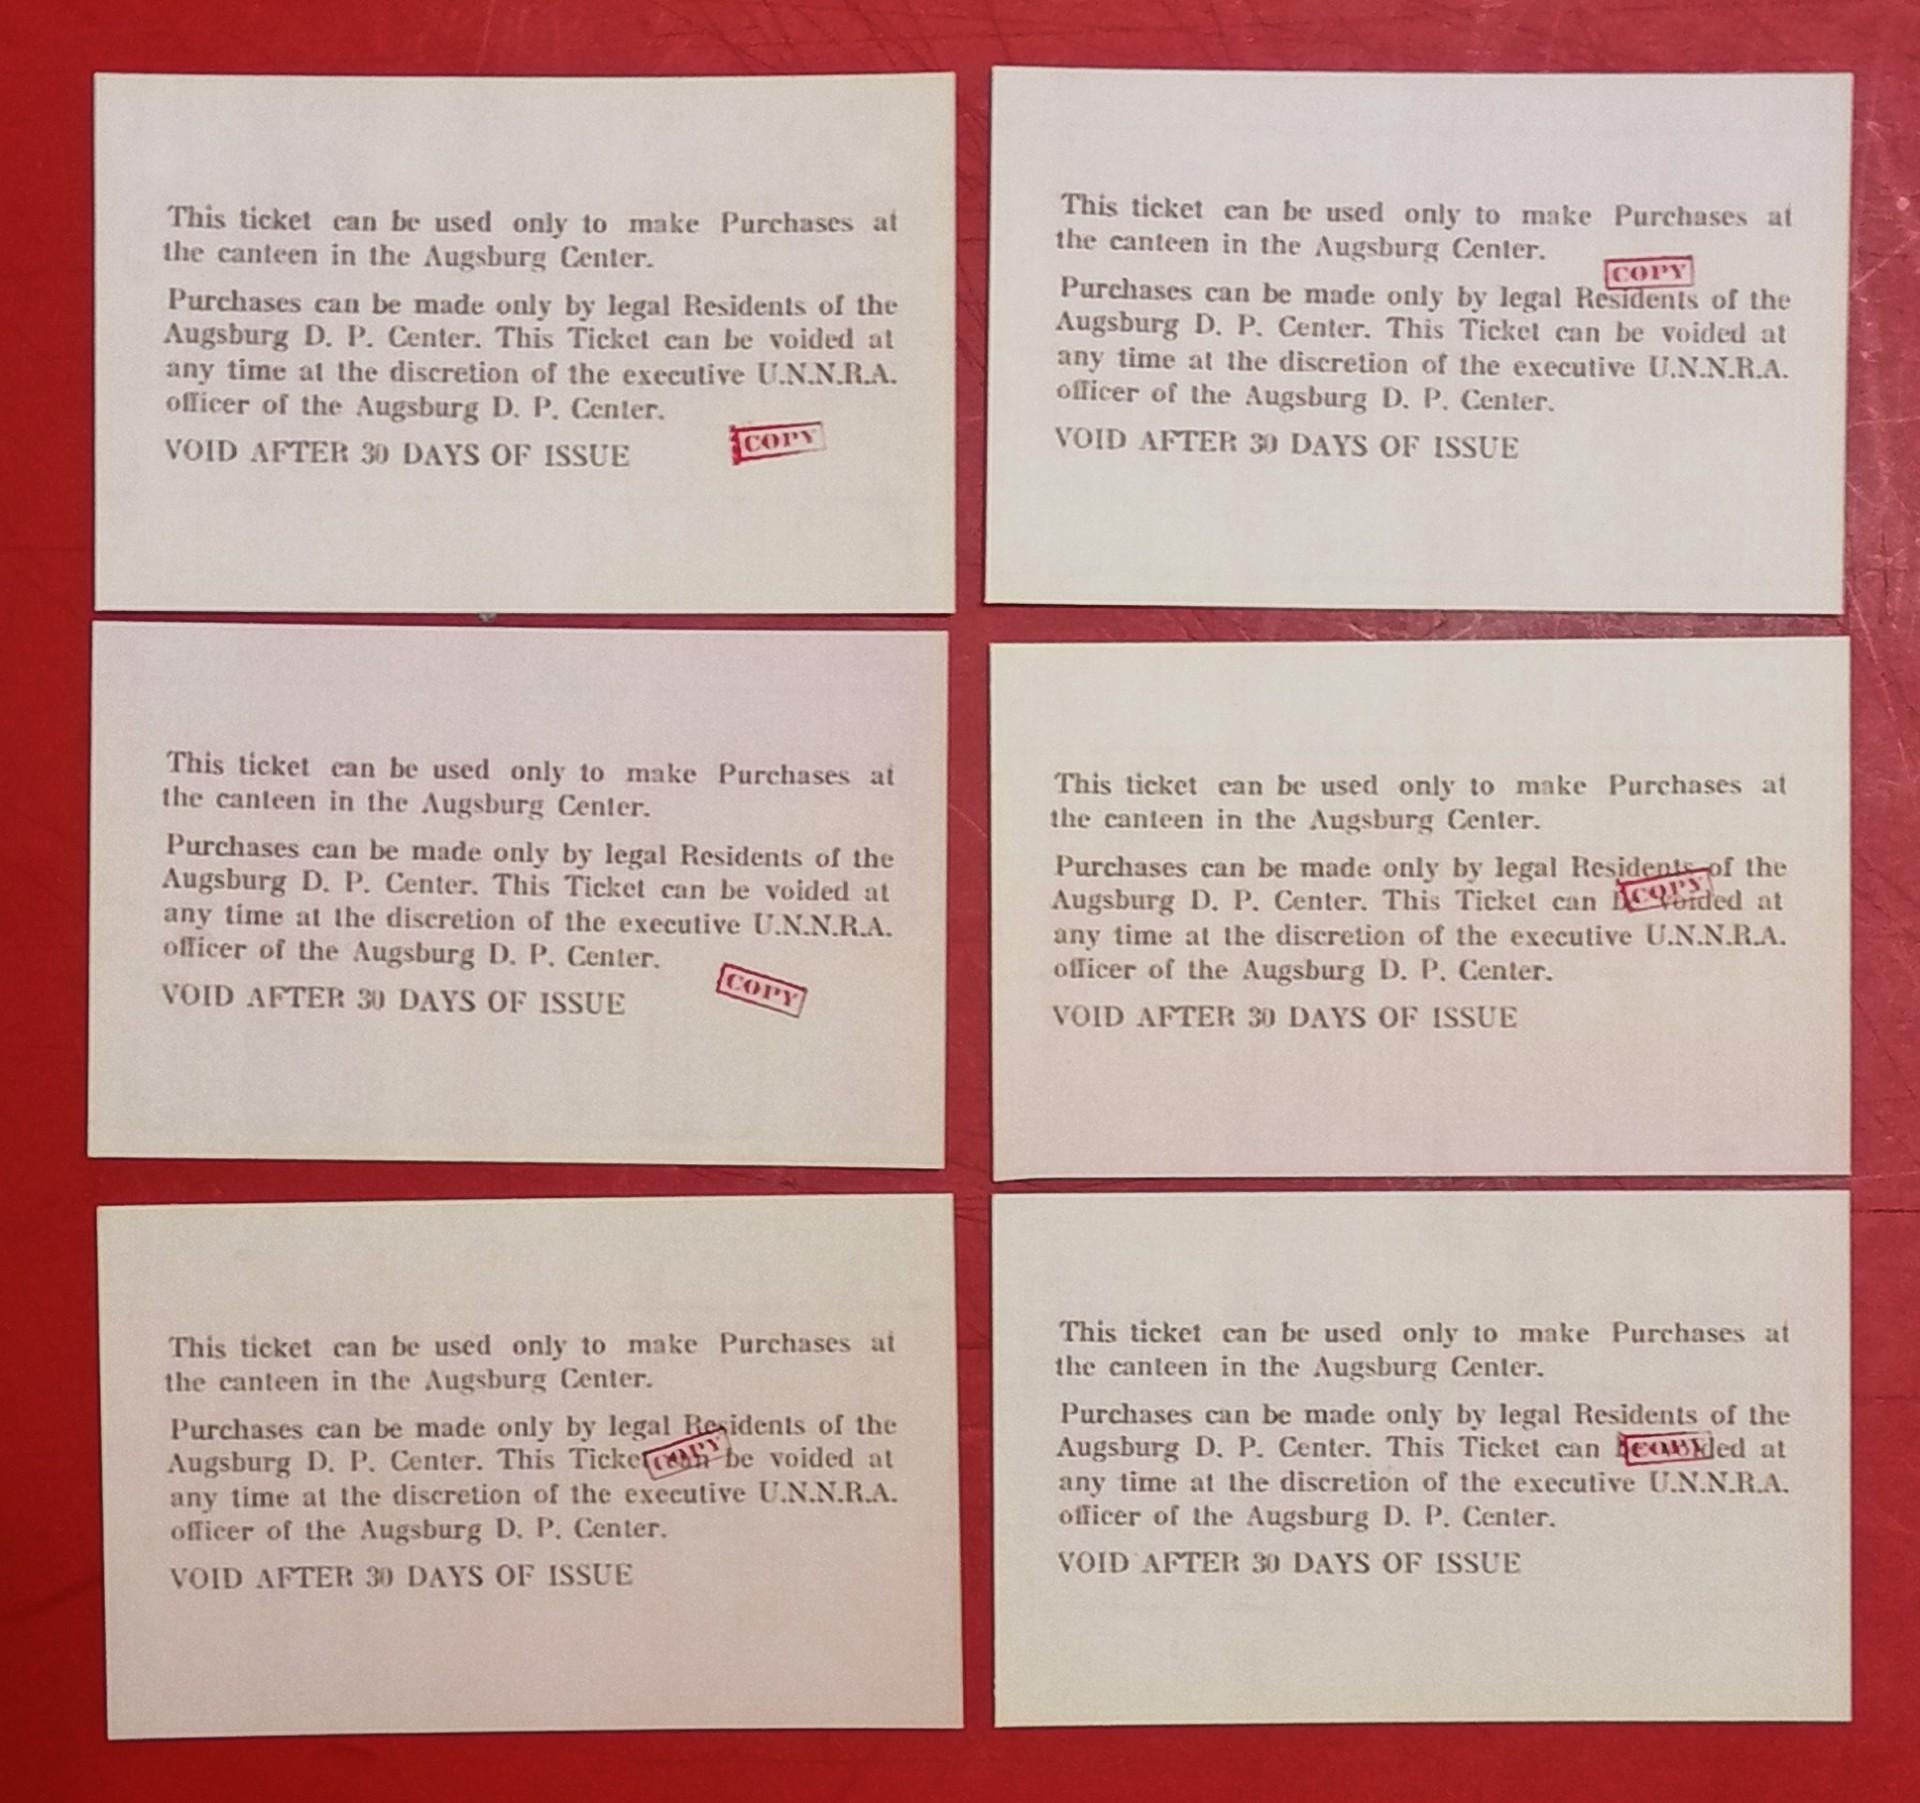 This ticket can be used only to make Purchases at
the canteen in the Augsburg Center.
Purchases can be made only by legal Residents of the
Augsburg D. P. Center. This Ticket can be voided at
any time at the discretion of the executive U.N.N.R.A.
officer of the Augsburg D. P. Center.
VOID AFTER 30 DAYS OF ISSUE
COPY
This ticket can be used only to make Purchases at
the canteen in the Augsburg Center.
COPY
Purchases can be made only by legal Residents of the
Augsburg D. P. Center. This Ticket can be voided at
any time at the discretion of the executive U.N.N.R.A.
officer of the Augsburg D. P. Center.
VOID AFTER 30 DAYS OF ISSUE
This ticket can be used only to make Purchases at
the canteen in the Augsburg Center.
Purchases can be made only by legal Residents of the
Augsburg D. P. Center. This Ticket can be voided at
any time at the discretion of the executive U.N.N.R.A.
officer of the Augsburg D. P. Center.
VOID AFTER 30 DAYS OF ISSUE
COPY
This ticket can be used only to make Purchases at
the canteen in the Augsburg Center.
Purchases can be made only by legal Residents of the
Augsburg D. P. Center. This Ticket can be voided at
COPY
any time at the discretion of the executive U.N.N.R.A.
officer of the Augsburg D. P. Center.
VOID AFTER 30 DAYS OF ISSUE
This ticket can be used only to make Purchases at
the canteen in the Augsburg Center.
Purchases can be made only by legal Residents of the
Augsburg D. P. Center. This Ticket can be voided at
COPY
any time at the discretion of the executive U.N.N.R.A.
officer of the Augsburg D. P. Center.
VOID AFTER 30 DAYS OF ISSUE
This ticket can be used only to make Purchases at
the canteen in the Augsburg Center.
Purchases can be made only by legal Residents of the
Augsburg D. P. Center. This Ticket can be voided at
COPY
any time at the discretion of the executive U.N.N.R.A.
officer of the Augsburg D. P. Center.
VOID AFTER 30 DAYS OF ISSUE